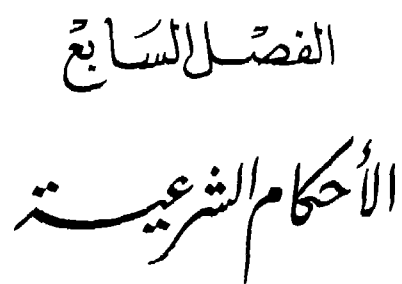 الفصل السابع
الأحكام الشرعية